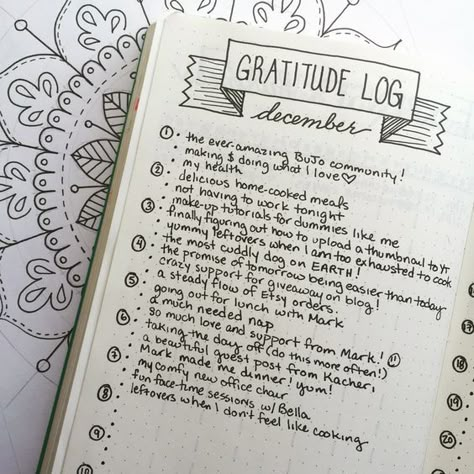 GRATITUDE LOG
december
① the ever-amazing BuJo community!
making $ doing what I love♡
my health
② delicious home-cooked meals
not having to work tonight
make-up tutorials for dummies like me
③ finally figuring out how to upload a thumbnail to YT
yummy leftovers when I am too exhausted to cook
the most cuddly dog on EARTH!
④ the promise of tomorrow being easier than today
crazy support for giveaway on blog!
a steady flow of Etsy orders.
⑤ going out for lunch with Mark
a much needed nap
so much love and support from Mark! ⑪
⑥ taking the day off (do this more often!)
a beautiful guest post from Kacheri
Mark made me dinner! yum!
⑦ my comfy new office chair
fun face-time sessions w/ Bella
leftovers when I don't feel like cooking
⑧
⑨
⑩
⑱
⑲
⑳